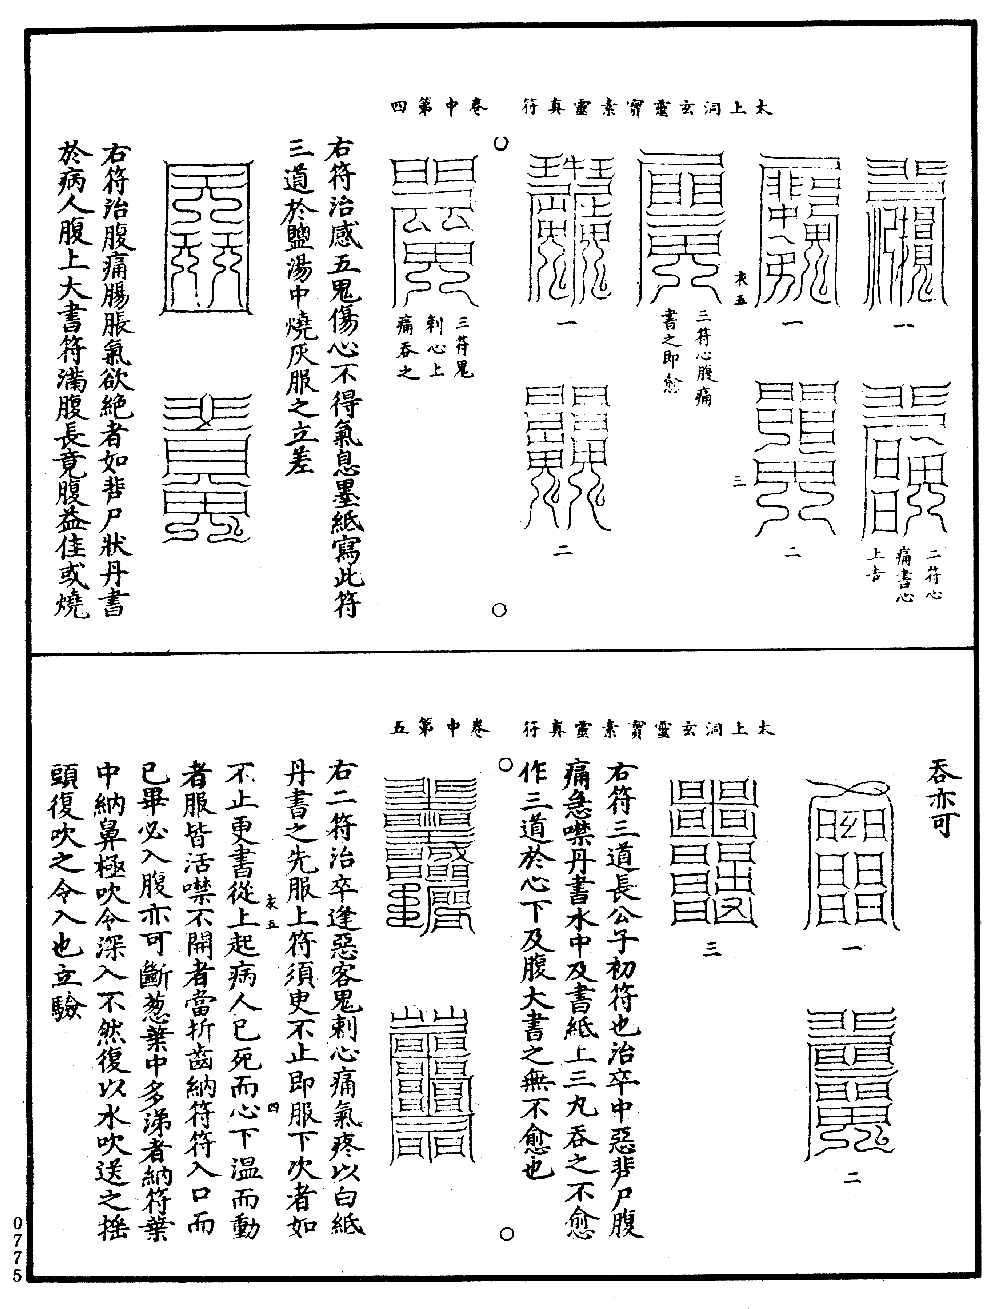 太上洞玄靈寶素靈真符　卷中第四
一
二
二符心
痛書心
上吉
一
二
亥五
三
三符心腹痛
書之即愈
一
二
三符鬼
刺心上
痛吞之
右符治感五鬼傷心不得氣息墨紙寫此符
三道於鹽湯中燒灰服之立差
右符治腹痛腸脹氣欲絕者如蜚尸狀丹書
於病人腹上大書符滿腹長竟腹益佳或燒
太上洞玄靈寶素靈真符　卷中第五
吞亦可
一
二
三
右符三道長公子初符也治卒中惡蜚尸腹
痛急噤丹書水中及書紙上三九吞之不愈
作三道於心下及腹大書之無不愈也
右二符治卒逢惡客鬼刺心痛氣疼以白紙
丹書之先服上符須臾不止即服下次者如
亥五
四
不止更書從上起病人已死而心下溫而動
者服皆活噤不開者當折齒納符符入口而
已畢必入腹亦可斷葱葉中多涕者納符葉
中納鼻極吹令深入不然復以水吹送之搖
頭復吹之令入也立驗
0775